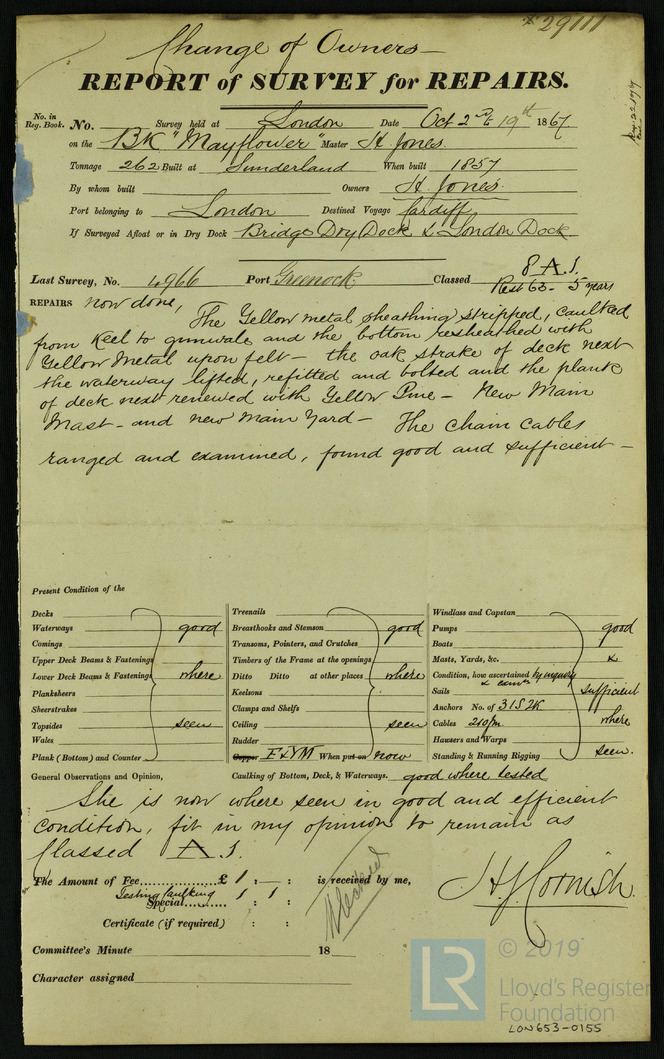 * 29111
Change of Owners—
REPORT of SURVEY for REPAIRS.
No. in Reg. Book. No. Survey held at London Date Oct 2nd & 19th 1867
on the BK "Mayflower" Master H. Jones.
Tonnage 262 Built at Sunderland When built 1857
By whom built Owners H. Jones.
Port belonging to London Destined Voyage Cardiff
If Surveyed Afloat or in Dry Dock Bridge Dry Dock & London Dock
Last Survey, No. 4966 Port Greenock Classed 8 A.1.
Rest 63 - 5 years
REPAIRS now done, The Yellow metal sheathing stripped, caulked
from Keel to gunwale and the bottom resheathed with
Yellow Metal upon felt — the oak strake of deck next
the waterway lifted, refitted and bolted and the plank
of deck next renewed with Yellow Pine — New Main
Mast - and new Main Yard — The chain cables
ranged and examined, found good and sufficient —
Present Condition of the
Decks
Waterways
Comings
Upper Deck Beams & Fastenings
Lower Deck Beams & Fastenings
Planksheers
Sheerstrakes
Topsides
Wales
Plank (Bottom) and Counter
good
where
seen
Treenails
Breasthooks and Stemson
Transoms, Pointers, and Crutches
Timbers of the Frame at the openings
Ditto Ditto at other places
Keelsons
Clamps and Shelfs
Ceiling
Rudder
Copper F & YM When put on now
good
where
seen
Windlass and Capstan
Pumps
Boats
Masts, Yards, &c.
Condition, how ascertained by inquiry
& exam
Sails
Anchors No. of 3 1S 2K
Cables 210 fm
Hawsers and Warps
Standing & Running Rigging
good
&
sufficient
where
seen.
General Observations and Opinion, Caulking of Bottom, Deck, & Waterways. good where tested
She is now where seen in good and efficient
condition, fit in my opinion to remain as
Classed A.1.
The Amount of Fee £ 1 : — : is received by me,
Testing Caulking
Special 1 : 1 :
Certificate (if required) : :
H. J. Cornish.
Committee's Minute 18
Character assigned
LR © 2019
Lloyd's Register
Foundation
LON653-0155